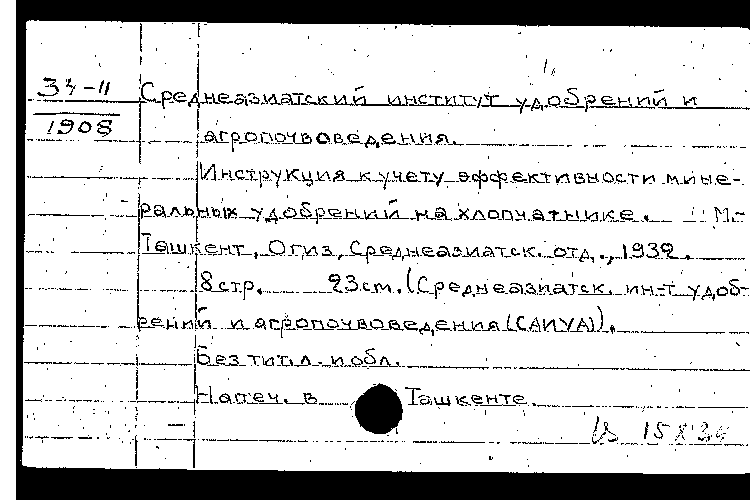 34-11
1908
Среднеазиатский институт удобрений и
агропочвоведения.
Инструкция к учету эффективности мине-
ральных удобрений на хлопчатнике. М.-
Ташкент, Огиз, Среднеазиатск. отд., 1932.
8 стр. 23 см. (Среднеазиатск. ин-т удоб-
рений и агропочвоведения (САИУА)).
Без тит. л. и обл.
Напеч. в Ташкенте.